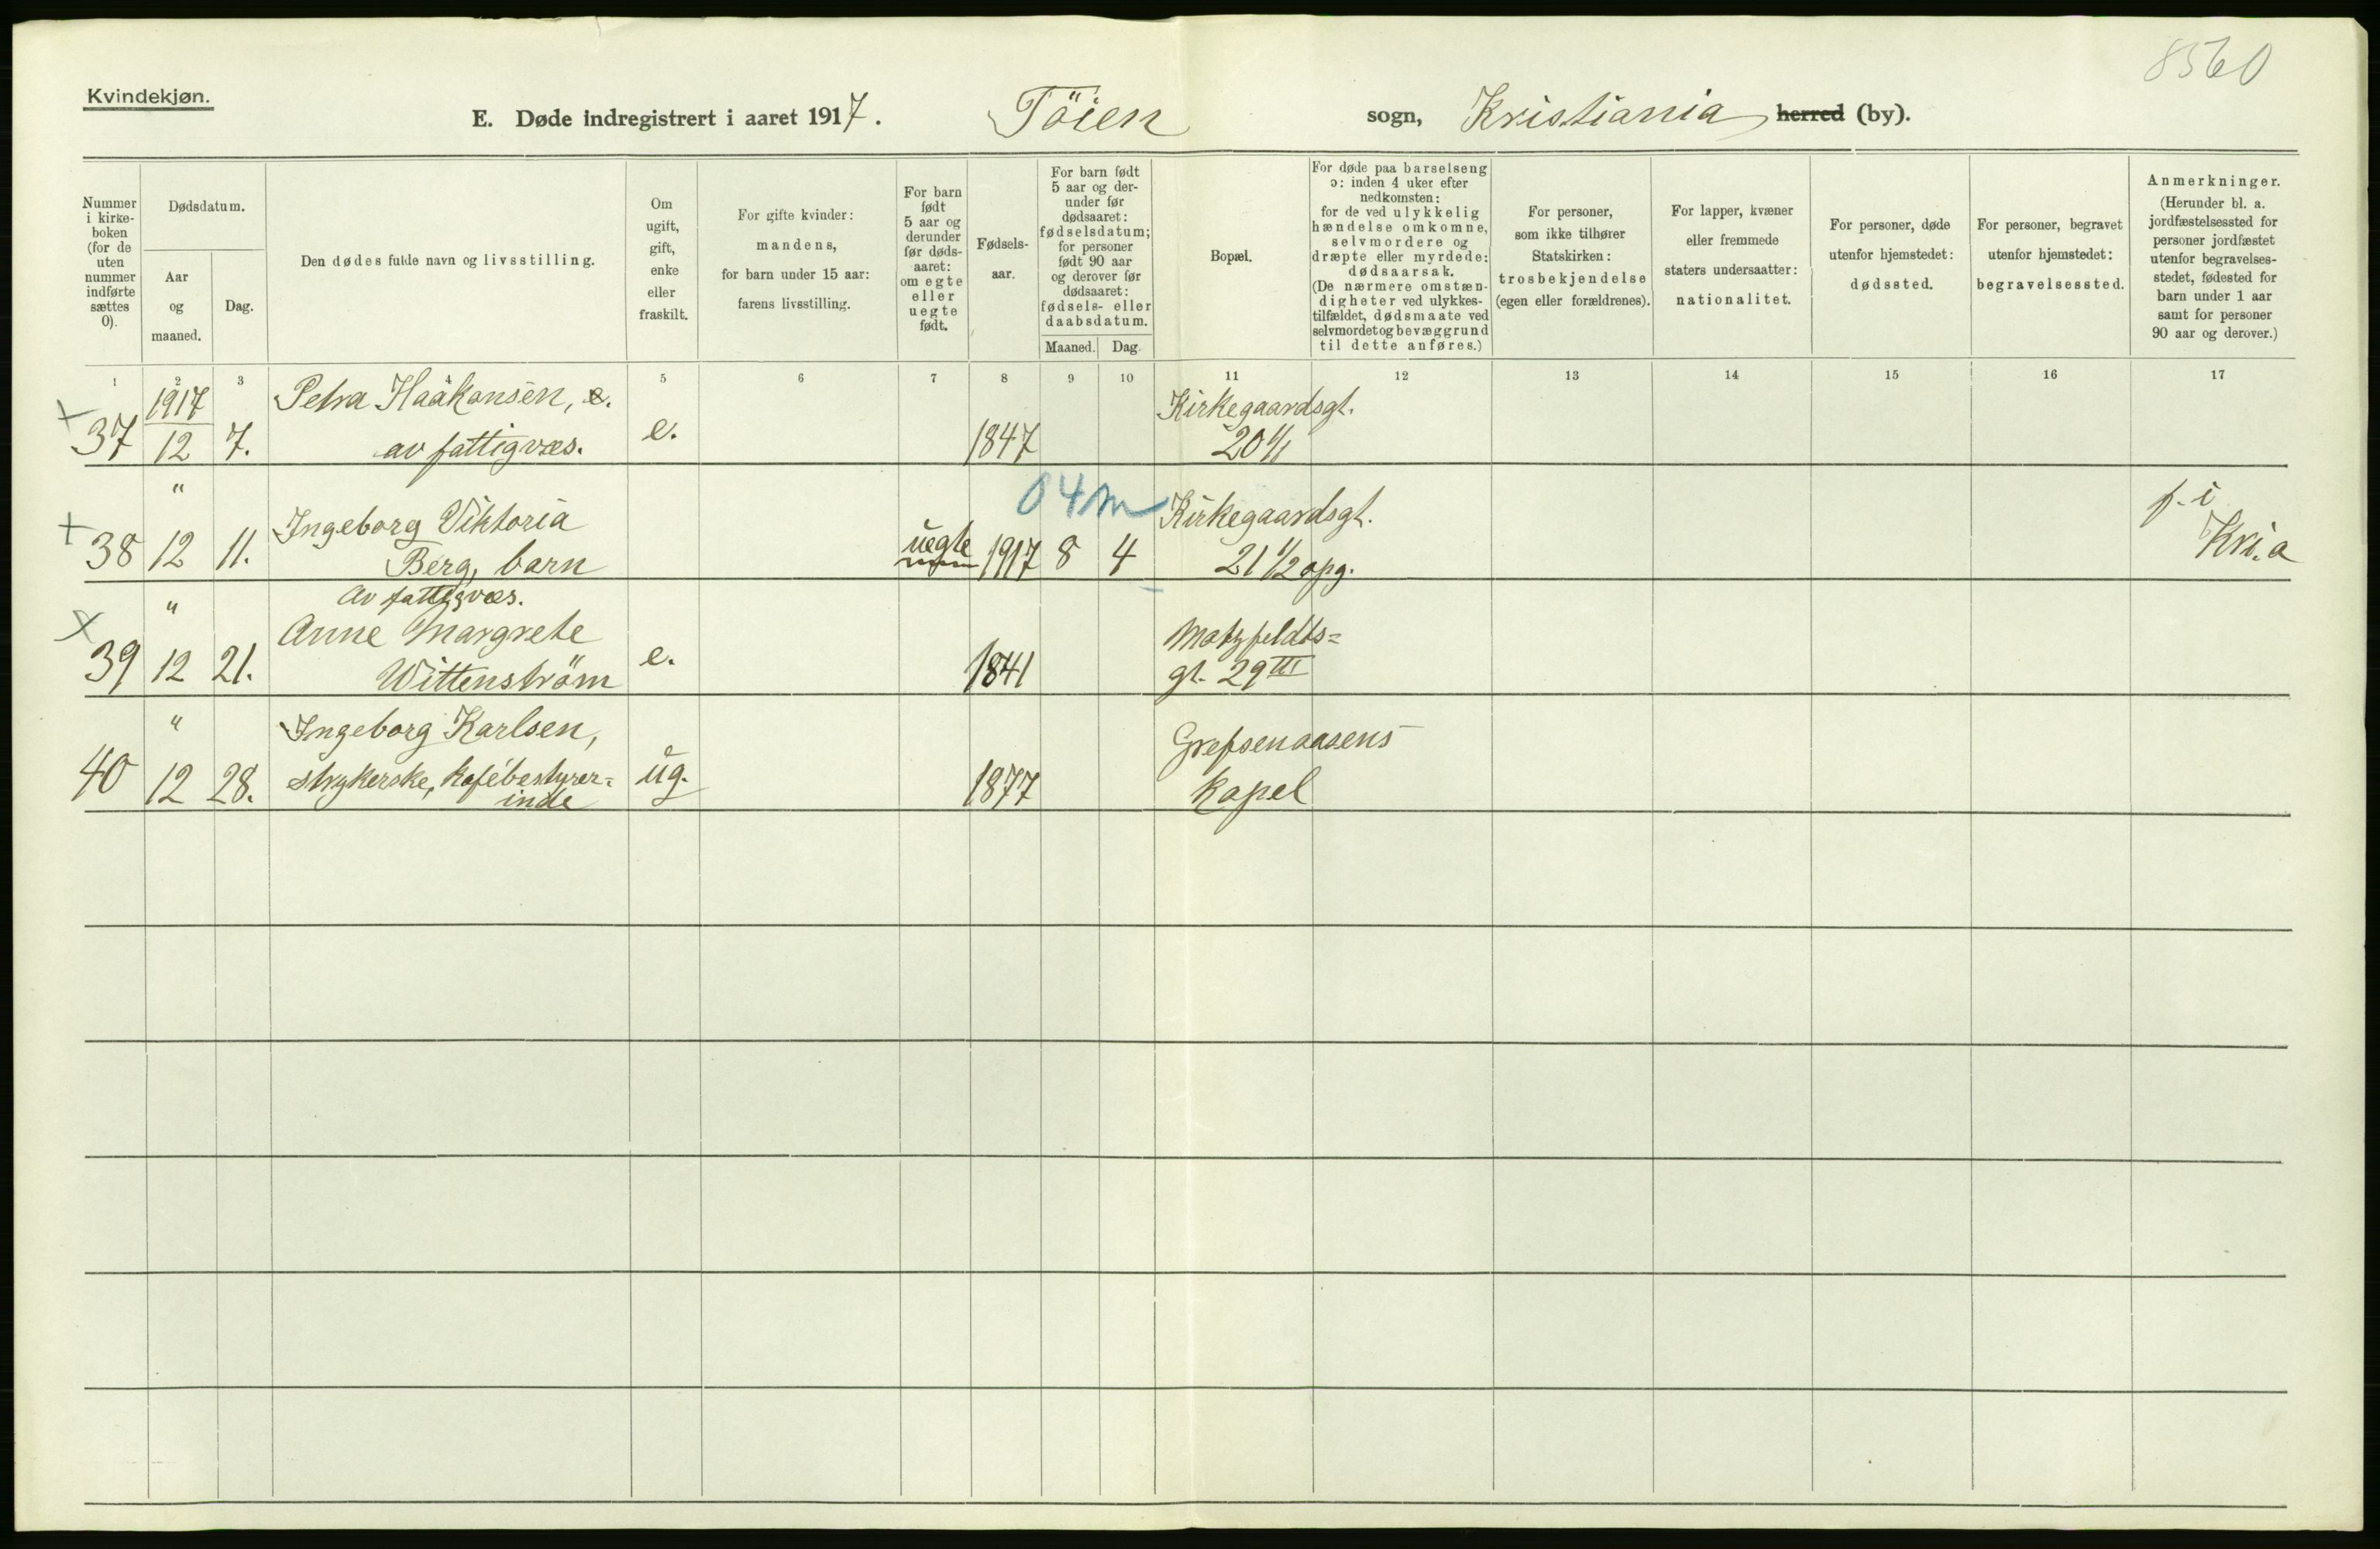 8560
Kvindekjøn.
E. Døde indregistrert i aaret 1917. Töien sogn, Kristiania herred (by).
Nummer i kirke-boken (for de uten nummer indførte sættes 0).
Dødsdatum.
Aar og maaned.
Dag.
Den dødes fulde navn og livsstilling.
Om ugift, gift, enke eller fraskilt.
For gifte kvinder: mandens, for barn under 15 aar: farens livsstilling.
For barn født 5 aar og derunder før døds-aaret: om egte eller uegte født.
Fødsels-aar.
For barn født 5 aar og der-under før dødsaaret: fødselsdatum; for personer født 90 aar og derover før dødsaaret: fødsels- eller daabsdatum.
Maaned. Dag.
Bopæl.
For døde paa barselseng ɔ: inden 4 uker efter nedkomsten: for de ved ulykkelig hændelse omkomne, selvmordere og dræpte eller myrdede: dødsaarsak. (De nærmere omstæn-digheter ved ulykkes-tilfældet, dødsmaate ved selvmordet og bevæggrund til dette anføres.)
For personer, som ikke tilhører Statskirken: trosbekjendelse (egen eller forældrenes).
For lapper, kvæner eller fremmede staters undersaatter: nationalitet.
For personer, døde utenfor hjemstedet: dødssted.
For personer, begravet utenfor hjemstedet: begravelsessted.
Anmerkninger. (Herunder bl. a. jordfæstelsessted for personer jordfæstet utenfor begravelses-stedet, fødested for barn under 1 aar samt for personer 90 aar og derover.)
1 2 3 4 5 6 7 8 9 10 11 12 13 14 15 16 17
1917 Petra Haakansen, e. Kirkegaardsgt.
37 12 7. av fattigvæs. e. 1847 20 1/1
" 04m
Ingeborg Viktoria Kirkegaardsgt. f. i
38 12 11. Berg, barn uegte 1917 8 4 21 1/2 opg. Kri.a
" av fattigvæs.
Anne Margrete Motzfeldts=
39 12 21. Wittenström e. 1841 gt. 29 III
" Ingeborg Karlsen, Grefsenaasens
40 12 28. strykerske, kafébestyrer= ug. 1877 kapel
inde